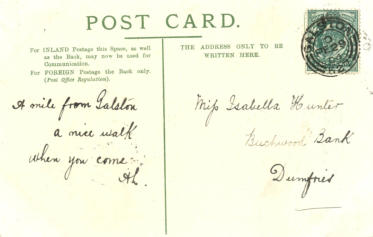 POST CARD.
For INLAND Postage this Space, as well
as the Back, may now be used for
Communication.
For FOREIGN Postage the Back only.
(Post Office Regulation).
THE ADDRESS ONLY TO BE
WRITTEN HERE.
A mile from Galston
a nice walk
when you come
AL.
Miss Isabella Hunter
Buchwood Bank
Dumfries